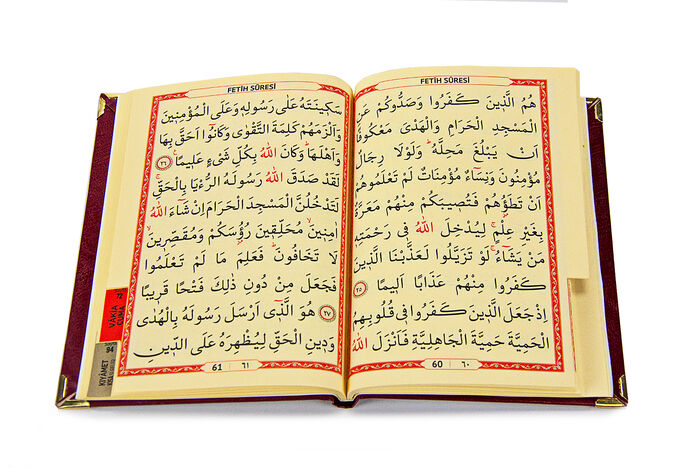 FETİH SÛRESİ
هُمُ الَّذ۪ينَ كَفَرُوا وَصَدُّوكُمْ عَنِ
الْمَسْجِدِ الْحَرَامِ وَالْهَدْيَ مَعْكُوفًا
اَنْ يَبْلُغَ مَحِلَّهُ وَلَوْلَا رِجَالٌ
مُؤْمِنُونَ وَنِسَٓاءٌ مُؤْمِنَاتٌ لَمْ تَعْلَمُوهُمْ
اَنْ تَطَؤُ۫هُمْ فَتُص۪يبَكُمْ مِنْهُمْ مَعَرَّةٌ
بِغَيْرِ عِلْمٍ لِيُدْخِلَ اللّٰهُ ف۪ي رَحْمَتِه۪
مَنْ يَشَٓاءُ لَوْ تَزَيَّلُوا لَعَذَّبْنَا الَّذ۪ينَ
كَفَرُوا مِنْهُمْ عَذَابًا اَل۪يمًا ٢٥
اِذْ جَعَلَ الَّذ۪ينَ كَفَرُوا ف۪ي قُلُوبِهِمُ
الْحَمِيَّةَ حَمِيَّةَ الْجَاهِلِيَّةِ فَاَنْزَلَ اللّٰهُ
60 ٦٠
FETİH SÛRESİ
سَك۪ينَتَهُ عَلٰى رَسُولِه۪ وَعَلَى الْمُؤْمِن۪ينَ
وَاَلْزَمَهُمْ كَلِمَةَ التَّقْوٰى وَكَانُٓوا اَحَقَّ بِهَا
وَاَهْلَهَا وَكَانَ اللّٰهُ بِكُلِّ شَيْءٍ عَل۪يمًا ٢٦
لَقَدْ صَدَقَ اللّٰهُ رَسُولَهُ الرُّءْيَا بِالْحَقِّ
لَتَدْخُلُنَّ الْمَسْجِدَ الْحَرَامَ اِنْ شَٓاءَ اللّٰهُ
اٰمِن۪ينَ مُحَلِّق۪ينَ رُؤُ۫سَكُمْ وَمُقَصِّر۪ينَ
لَا تَخَافُونَ فَعَلِمَ مَا لَمْ تَعْلَمُوا
فَجَعَلَ مِنْ دُونِ ذٰلِكَ فَتْحًا قَر۪يبًا
٢٧ هُوَ الَّذ۪ٓي اَرْسَلَ رَسُولَهُ بِالْهُدٰى
وَد۪ينِ الْحَقِّ لِيُظْهِرَهُ عَلَى الدّ۪ينِ
61 ٦١
72
VÂKIA
CUMA
94
KIYÂMET